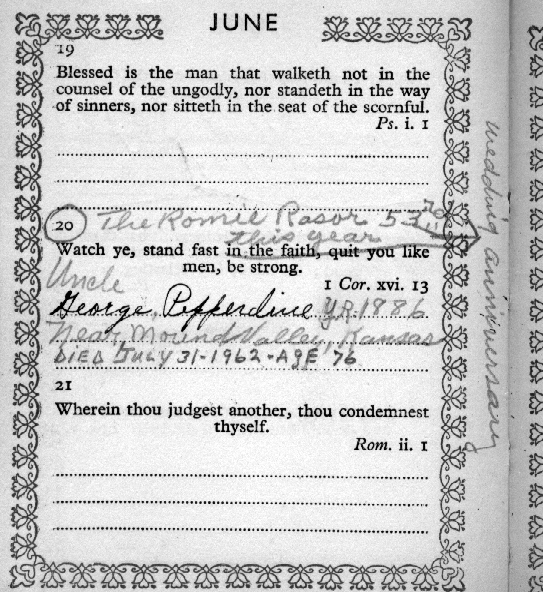 JUNE
19
Blessed is the man that walketh not in the
counsel of the ungodly, nor standeth in the way
of sinners, nor sitteth in the seat of the scornful.
Ps. i. 1
20 The Romie Rasor 53
this year
wedding anniversary
Watch ye, stand fast in the faith, quit you like
men, be strong.
1 Cor. xvi. 13
Uncle
George Pepperdine Yr. 1886
Near Mound Valley, Kansas
DIED JULY 31-1962-AGE 76
21
Wherein thou judgest another, thou condemnest
thyself.
Rom. ii. 1